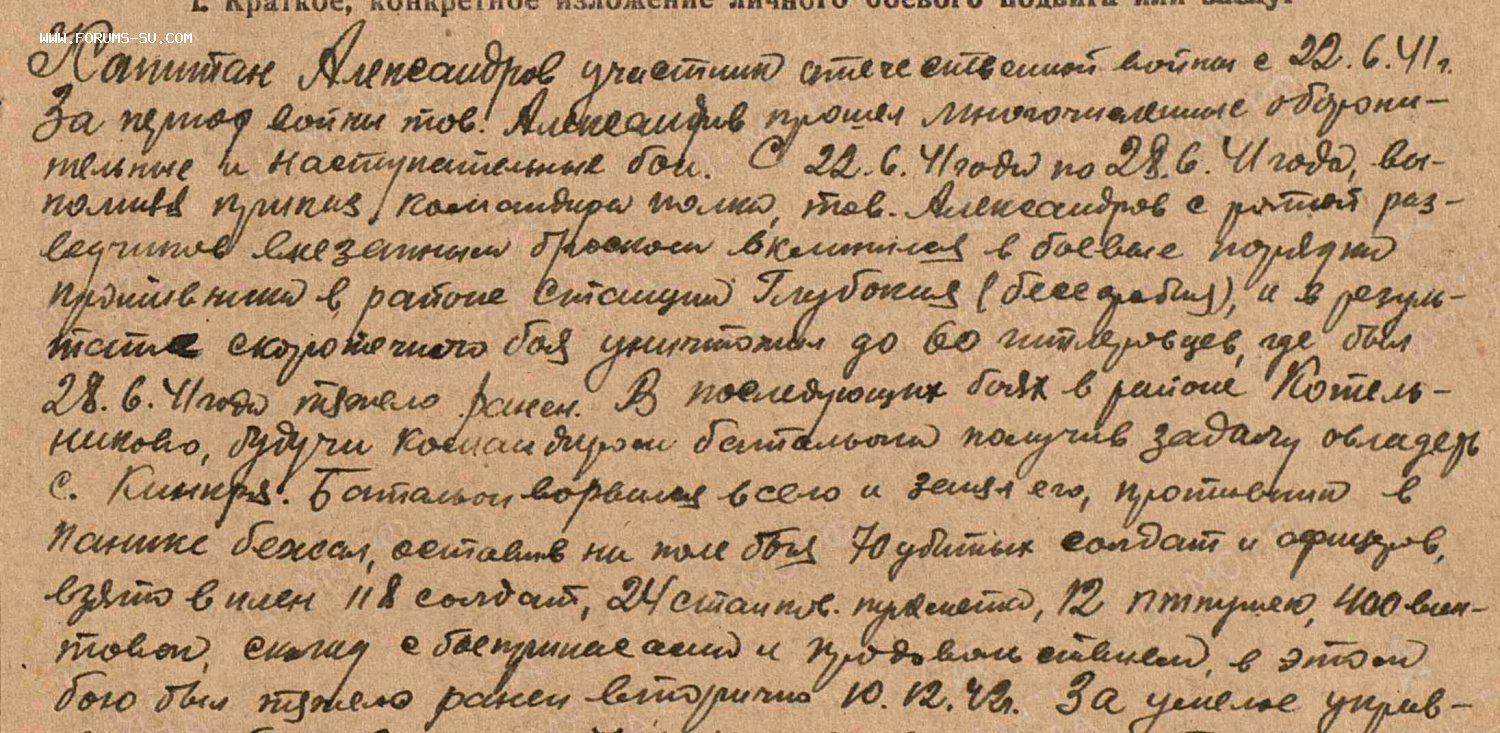 1. Краткое, конкретное изложение личного боевого подвига или заслуг
WWW.FORUMS-SU.COM
Капитан Александров участник отечественной войны с 22.6.41 г.
За период войны тов. Александров прошел многочисленные оборони-
тельные и наступательные бои. С 22.6.41 года по 28.6.41 года, вы-
полняя приказ командира полка, тов. Александров с ротой раз-
ведчиков внезапным броском вклинился в боевые порядки
противника в районе станции Глубокия (Бессарабия), и в резуль-
тате скоротечного боя уничтожил до 60 гитлеровцев, где был
28.6.41 года тяжело ранен. В последующих боях в районе Котель-
никово, будучи командиром батальона получив задачу овладеть
с. Батальон ворвался в село и занял его, противник в
панике бежал, оставив на поле боя 70 убитых солдат и офицеров,
взято в плен 118 солдат, 24 станков. пулемета, 12 птпушек, 400 вин-
товок, склад с боеприпасами и продовольствием, в этом
бою был тяжело ранен вторично 10.12.42г. За умелое управ-